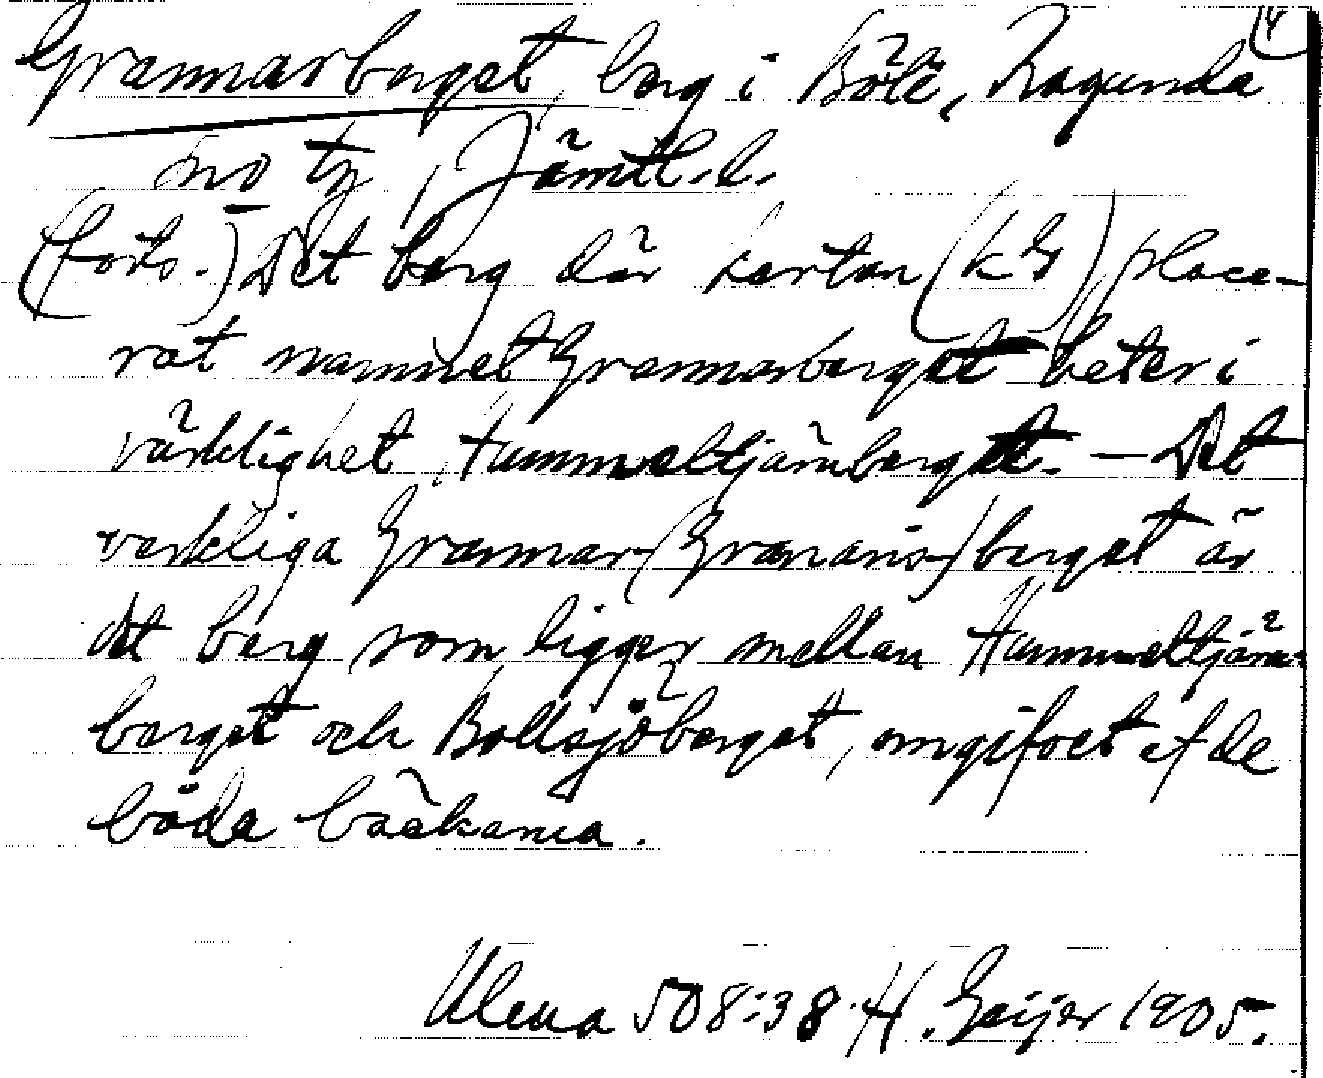 Grannarberget, berg i Böle, Ragunda
sn o tg, Jämtl. l.
(forts.) Det berg där kartan (k G) place-
rat namnet Grannarberget heter i
värklighet Hummeltjärnberget. — Det
verkliga Grannar-(Granans-)berget är
det berg som ligger mellan Hummeltjärn-
berget och Bollsjöberget, omgifvet af de
båda bäckarna.
Ulma 508:38. H. Geijer 1905.